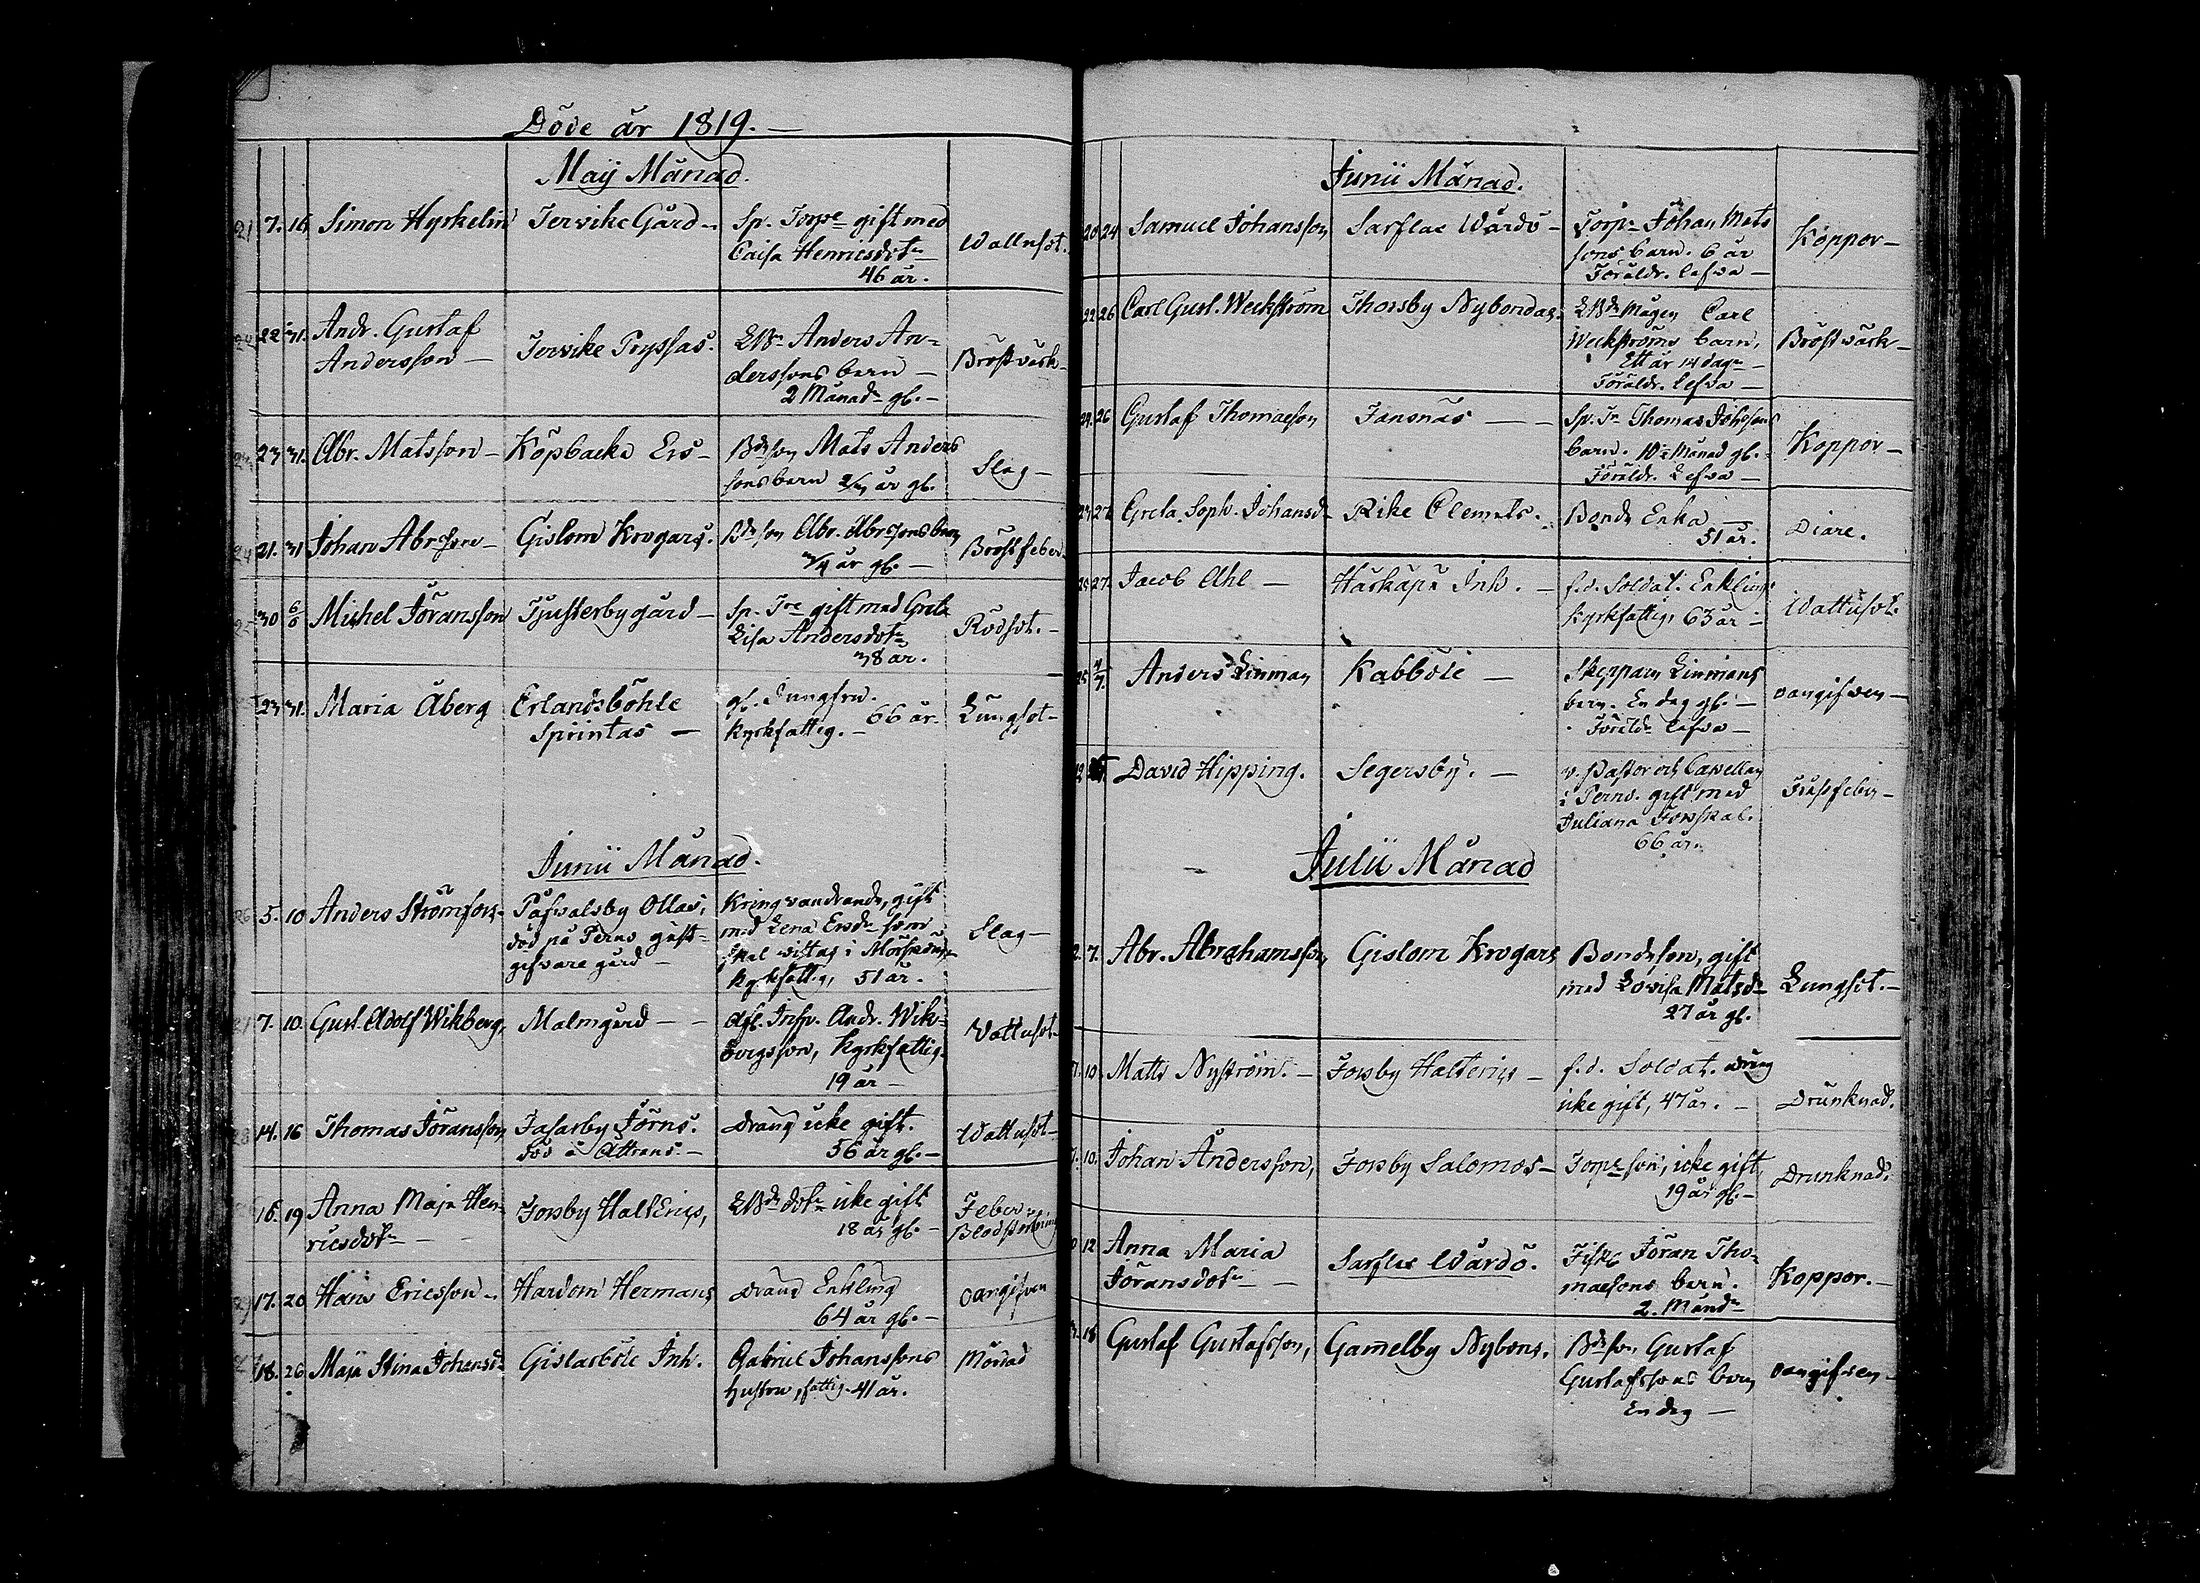 Döde år 1819. —
Maij Månad.
21 7. 16 Simon Hyrkelin Tervike Gård — Sp. Torpe gift med Wattusot.
Caisa Henricsdotr
46 år.
22 31. Andr. Gustaf Andersson — Tervike Pryssas. Anders An- Bröstvärk —
derssons barn —
2 Månadr gl. —
23 31. Abr. Matsson — Köpbacka Ers — Bdeson Mats Anders Slag —
sons barn år gl.
24 21. 31 Johan Abrsson — Gislom Krogars. Bdeson Abr. Abrssons barn Bröstfeber
3/4 år gl. —
25 30 6/6 Michel Jöransson Tjusterby gård — Sp. Tre gift med Greta Rödsot. —
Lisa Andersdotr
38 år.
23 31. Maria Åberg Erlandsböhle gl. Jungfru. Lungsot —
Sprintas — Kyrkfattig. — 66 år.
Junii Månad.
26 5. 10 Anders Strömfors — Påfvalsby Ollas, Kringvandrande, gift Slag —
död på Perno gäst- med Lena Ersdr som
gifvare gård — skal vistas i Mörskom,
Kyrkfattig, 51 år.
27 7. 10. Gust. Adolf Wikberg, Malmgård — — Afl. Insp. Andr. Wik- Vattusot —
bergs son, Kyrkfattig.
19 år —
28 14. 16 Thomas Jöransson, Fasarby Jörns. Dräng icke gift. Wattusot —
död å — 56 år gl. —
16. 19 Anna Maja Hen- Forsby HalkErics, dotr icke gift Feber
ricsdotr — — 18 år gl. — Blodstörtning
17. 20 Hans Ericsson — Hardom Hermans Dräng Enkling oangifven
64 år gl. —
18. 26 Maja Stina Johansd. Gislarböle Inh. Gabriel Johanssons Mässad
hustru, fattig. 41 år.
Junii Månad.
20 24 Samuel Johansson Sarflax Wårdö — Torpr Johan Mats Koppor —
sons barn. 6 år
Föräldr. lefva —
22 26 Carl Gust. Weckström Thorsby Nybondas. Mågen Carl Bröstvärk —
Weckströms barn,
Ett år 14 dagr —
Föräldr. lefva —
24. 26 Gustaf Thomasson Jansnäs — — Sp. Tr Thomas Johssons Koppor —
barn. Månad gl. —
Föräldr. Lefva —
23 27. Greta Soph. Johansd — Rike Clemets. Bonde Enka — Diare.
51 år.
25 27. Jacob Ahl — Härkäpä Inh. — f.d. Soldat. Enkling Wattusot.
Kyrkfattig, 63 år —
25 4/7. Anders Linman Kabböle — Skeppare Linmans oangifven —
barn. En dag gl. —
Föräldr lefva —
David Hipping. Segersby. — v. Pastor och Capellan —
i Perno. gift med
Juliana Forskal.
66 år.
Julii Månad
2. 7. Abr. Abrahamsson, Gislom Krogars Bondeson, gift Lungsot. —
med Lovisa Matsdr
27 år gl.
7. 10. Matts Nyström. — Forsby HalkErics — f.d. Soldat. dräng Drunknad.
icke gift, 47 år. —
7. 10. Johan Andersson, Forsby Salomos — Torpr son, icke gift, Drunknad.
19 år gl. —
12 Anna Maria Sarflax Wårdö. Jöran Tho- Koppor. —
Jöransdotr — — massons barn.
2. Månadr
18 Gustaf Gustafsson, Gamelby Nybons. Bdeson Gustaf oangifven —
Gustafssons barn
En dag —